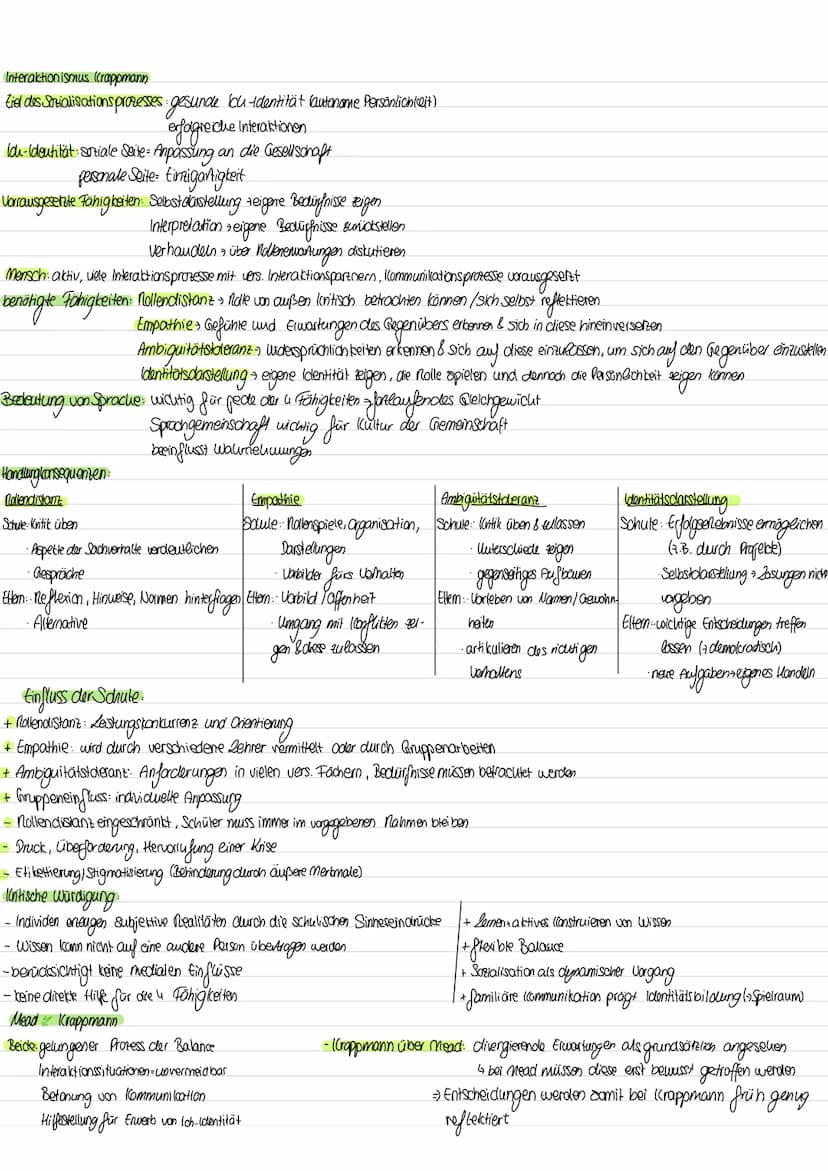 Interaktionismus Krappmann
Ziel des Sozialisationsprozesses: gesunde Ich-Identität (autonome Persönlichkeit)
erfolgreiche Interaktionen
Ich-Identität: soziale Seite= Anpassung an die Gesellschaft
personale Seite= Einzigartigkeit
Vorrausgesetzte Fähigkeiten: Selbstdarstellung → eigene Bedürfnisse zeigen
Interpretation → eigene Bedürfnisse zurückstellen
Verhandeln → über Rollenerwartungen diskutieren
Mensch: aktiv, viele Interaktionsprozesse mit vers. Interaktionspartnern, Kommunikationsprozesse vorausgesetzt
benötigte Fähigkeiten: Rollendistanz → Rolle von außen kritisch betrachten können / sich selbst reflektieren
Empathie → Gefühle und Erwartungen des Gegenübers erkennen & sich in diese hineinversetzen
Ambiguitätstoleranz → Widersprüchlichkeiten erkennen & sich auf diese einzulassen, um sich auf den Gegenüber einzustellen
Identitätsdarstellung → eigene Identität zeigen, die Rolle spielen und dennoch die Persönlichkeit zeigen können
Bedeutung von Sprache: wichtig für jede der 4 Fähigkeiten → fortlaufendes Gleichgewicht
Sprachgemeinschaft wichtig für Kultur der Gemeinschaft
beeinflusst Wahrnehmungen
Handlungskonsequenzen:
Rollendistanz
Schule: Kritik üben
· Aspekte der Sachverhalte verdeutlichen
· Gespräche
Eltern: Reflexion, Hinweise, Normen hinterfragen
· Alternative
Empathie
Schule: Rollenspiele, Organisation,
Darstellungen
· Vorbilder fürs Verhalten
Eltern: · Vorbild / Offenheit
· Umgang mit Konflikten zei-
gen & diese zulassen
Ambiguitätstoleranz
Schule: · Kritik üben & zulassen
· Unterschiede zeigen
· gegenseitiges Aufbauen
Eltern: · Vorleben von Normen/Gewohn-
heiten
· artikulieren des richtigen
Verhaltens
Identitätsdarstellung
Schule: Erfolgserlebnisse ermöglichen
(z.B. durch Projekte)
· Selbstdarstellung → Lösungen nicht
vorgeben
Eltern: · wichtige Entscheidungen treffen
lassen (→ demokratisch)
· neue Aufgaben → eigenes Handeln
Einfluss der Schule:
+ Rollendistanz: Leistungskonkurrenz und Orientierung
+ Empathie: wird durch verschiedene Lehrer vermittelt oder durch Gruppenarbeiten
+ Ambiguitätstoleranz: Anforderungen in vielen vers. Fächern, Bedürfnisse müssen betrachtet werden
+ Gruppeneinfluss: individuelle Anpassung
- Rollendistanz eingeschränkt, Schüler muss immer im vorgegebenen Rahmen bleiben
- Druck, Überforderung, Hervorrufung einer Krise
- Etikettierung/Stigmatisierung (Behinderung durch äußere Merkmale)
Kritische Würdigung:
- Individen erzeugen subjektive Realitäten durch die schulischen Sinneseindrücke
- Wissen kann nicht auf eine andere Person übertragen werden
- berücksichtigt keine medialen Einflüsse
- keine direkte Hilfe für die 4 Fähigkeiten
+ Lernen = aktives Konstruieren von Wissen
+ flexible Balance
+ Sozialisation als dynamischer Vorgang
+ familiäre Kommunikation prägt Identitätsbildung (→ Spielraum)
Mead & Krappmann
Beide: gelungener Prozess der Balance
Interaktionssituationen = unvermeidbar
Betonung von Kommunikation
Hilfestellung für Erwerb von Ich-Identität
- Krappmann über Mead: divergierende Erwartungen als grundsätzlich angesehen
↳ bei Mead müssen diese erst bewusst getroffen werden
⇒ Entscheidungen werden somit bei Krappmann früh genug
reflektiert